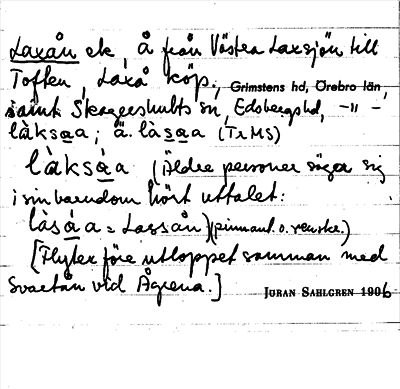 Laxån ek, å från Västra Laxsjön till
Toften, Laxå köp., Grimstens hd, Örebro län,
samt Skagershults sn, Edsbergshd, –"–
làksa̲a; ä. làsa̲a (TrMS)
làksá̲a (Äldre personer säger sig
i sin barndom hört uttalet:
làsá̲a = Lassån) (
[Flyter före utloppet samman med
Svartån vid Ågrena.]
JÖRAN SAHLGREN 1906